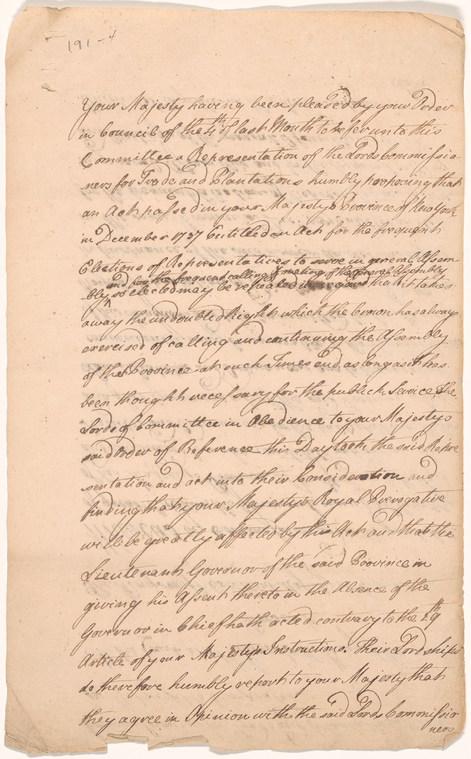 191-4
Your Majesty having been pleased by your Order
in Council of the 4th of last Month to refer unto this
Committee a Representation of the Lords Commissio-
ners for Trade and Plantations humbly proposing that
an Act passed in your Majestys Province of New York
in December 1737 Entitled an Act for the frequent
Elections of Representatives to serve in general Assem
and for the frequent calling & meeting of the general Assembly
bly so elected may be repealed in regard that it takes
away the undoubted Right which the Crown has always
exercised of calling and continuing the Assembly
of this Province at such Times and as long as it has
been thought necessary for the publick Service The
Lords of Committee in Obedience to your Majestys
said Order of Reference this Day took the said Repre
sentation and act into their Consideration and
finding that your Majestys Royal Prerogative
will be greatly affected by this Act and that the
Lieutenant Governor of the said Province in
giving his Assent thereto in the Absence of the
Governor in Chief hath acted contrary to the
Article of your Majestys Instructions. Their Lordships
do therefore humbly report to your Majesty that
they agree in Opinion with the said Lords Commissio
ners